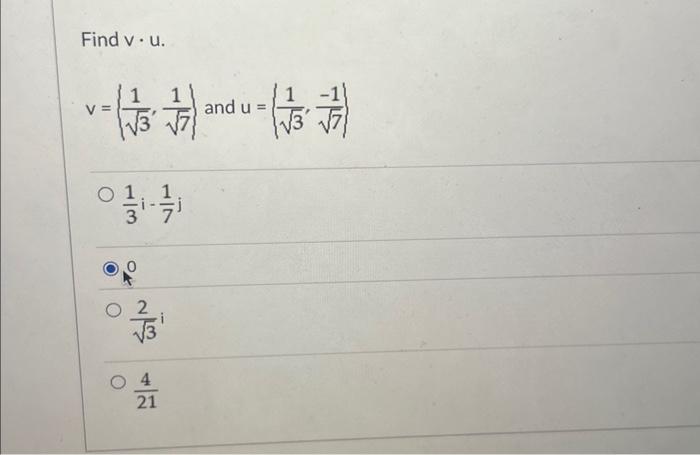 Find v · u.
v = {1/√3, 1/√7} and u = {1/√3, -1/√7}
1/3 i - 1/7 j
0
2/√3 i
4/21